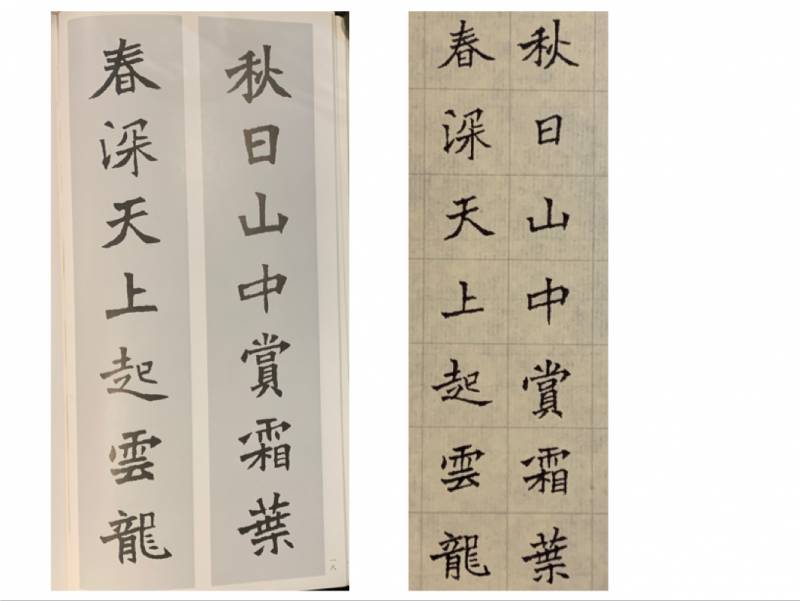 秋日山中賞霜葉
春深天上起雲龍
一八
秋日山中賞霜葉
春深天上起雲龍